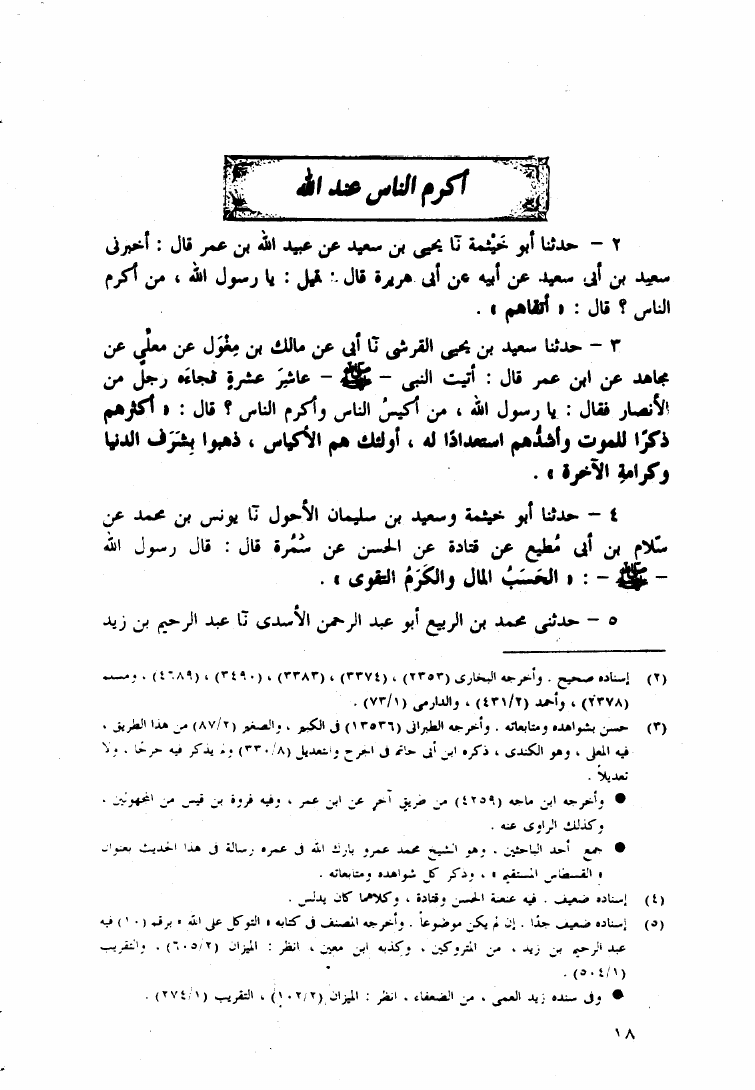 أكرم الناس عند الله
٢ – حدثنا أبو خَيْثمة نَا يحيى بن سعيد عن عبيد الله بن عمر قال : أخبرنى
سعيد بن أبى سعيد عن أبيه عن أبى هريرة قال : قيل : يا رسول الله ، من أكرم
الناس ؟ قال : « أتقاهم » .
٣ – حدثنا سعيد بن يحيى القرشى نَا أبى عن مالك بن مِغْوَل عن معلَّى عن
مجاهد عن ابن عمر قال : أتيت النبى – ﷺ – عاشِرَ عشرةٍ فجاءَه رجلٌ من
الأنصار فقال : يا رسول الله ، من أكيسُ الناس وأكرم الناس ؟ قال : « أكثرهم
ذكرًا للموت وأشدُّهم استعدادًا له ، أولئك هم الأكياس ، ذهبوا بِشَرَفِ الدنيا
وكرامةِ الآخرة » .
٤ – حدثنا أبو خيثمة وسعيد بن سليمان الأحول نَا يونس بن محمد عن
سلّام بن أبى مُطيع عن قتادة عن الحسن عن سَمُرة قال : قال رسول الله
– ﷺ – : « الحَسَبُ المال والكَرَمُ التقوى » .
٥ – حدثنى محمد بن الربيع أبو عبد الرحمن الأسدى نَا عبد الرحيم بن زيد
(٢) إسناده صحيح . وأخرجه البخارى (٢٣٥٣) ، (٣٣٧٤) ، (٣٣٨٣) ، (٣٤٩٠) ، (٤٦٨٩) ، ومسلم
(٢٣٧٨) ، وأحمد (٤٣١/٢) ، والدارمى (٧٣/١) .
(٣) حسن بشواهده ومتابعاته . وأخرجه الطبرانى (١٣٥٣٦) فى الكبير ، والصغير (٨٧/٢) من هذا الطريق ،
فيه المعلى ، وهو الكندى ، ذكره ابن أبى حاتم فى الجرح والتعديل (٣٣٠/٨) ولم يذكر فيه جرحًا . ولا
تعديلاً .
● وأخرجه ابن ماجه (٤٢٥٩) من طريق آخر عن ابن عمر ، وفيه فروة بن قيس من المجهولين ،
وكذلك الراوى عنه .
● جمع أحد الباحثين . وهو الشيخ محمد عمرو بارك الله فى عمره رسالة فى هذا الحديث بعنوان
« القسطاس المستقيم » ، وذكر كل شواهده ومتابعاته .
(٤) إسناده ضعيف . فيه عنعنة الحسن وقتادة ، وكلاهما كان يدلس .
(٥) إسناده ضعيف جدًا . إن لم يكن موضوعاً . وأخرجه المصنف فى كتابه « التوكل على الله » برقم (١٠) فيه
عبد الرحيم بن زيد ، من المتروكين ، وكذبه ابن معين ، انظر : الميزان (٦٠٥/٢) ، والتقريب
(٥٠٤/١) .
● وفى سنده زيد العمى ، من الضعفاء ، انظر : الميزان (١٠٢/٢) ، التقريب (٢٧٤/١) .
١٨